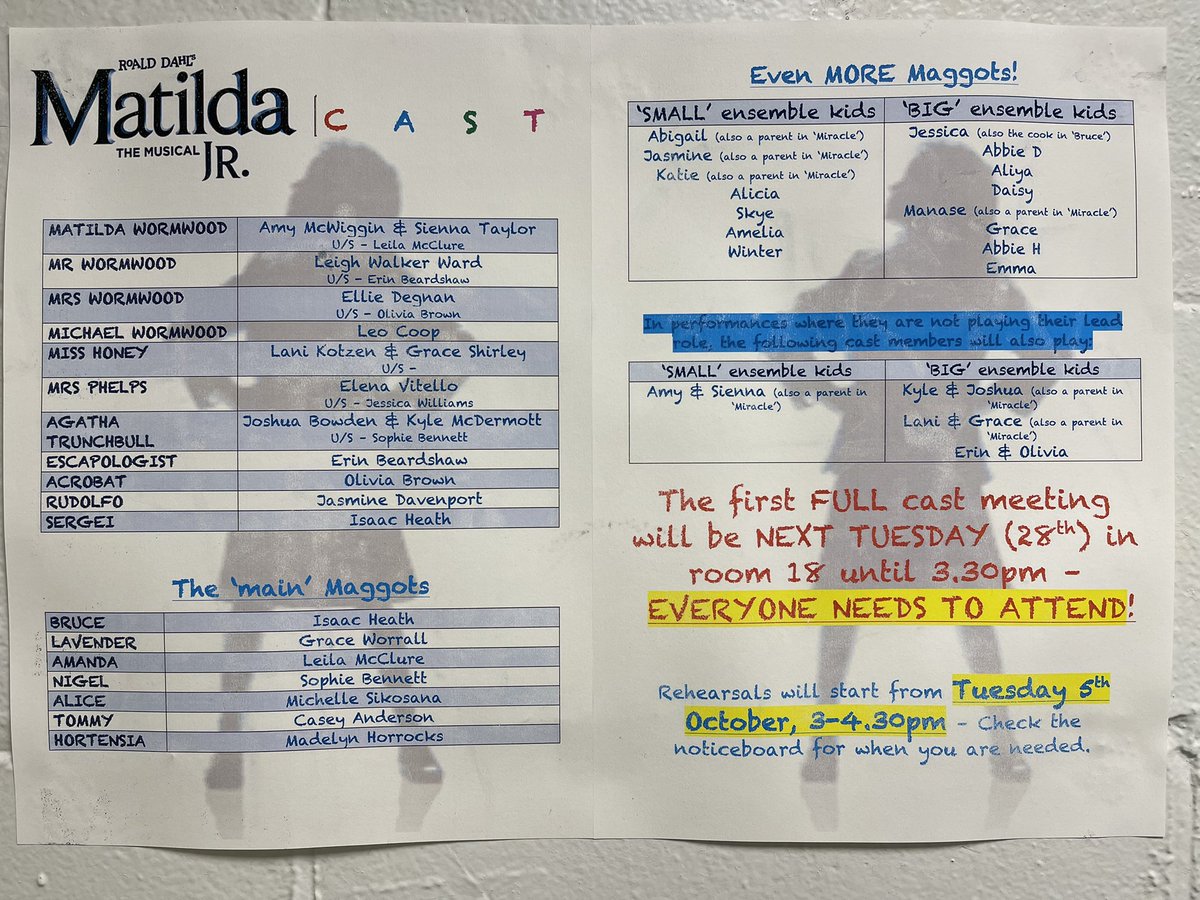 ROALD DAHL'S
Matilda
THE MUSICAL JR.
CAST
MATILDA WORMWOOD Amy McWiggin & Sienna Taylor
U/S – Leila McClure
MR WORMWOOD Leigh Walker Ward
U/S – Erin Beardshaw
MRS WORMWOOD Ellie Degnan
U/S – Olivia Brown
MICHAEL WORMWOOD Leo Coop
MISS HONEY Lani Kotzen & Grace Shirley
U/S –
MRS PHELPS Elena Vitello
U/S – Jessica Williams
AGATHA Joshua Bowden & Kyle McDermott
TRUNCHBULL U/S – Sophie Bennett
ESCAPOLOGIST Erin Beardshaw
ACROBAT Olivia Brown
RUDOLFO Jasmine Davenport
SERGEI Isaac Heath
The 'main' Maggots
BRUCE Isaac Heath
LAVENDER Grace Worrall
AMANDA Leila McClure
NIGEL Sophie Bennett
ALICE Michelle Sikosana
TOMMY Casey Anderson
HORTENSIA Madelyn Horrocks
Even MORE Maggots!
'SMALL' ensemble kids 'BIG' ensemble kids
Abigail (also a parent in 'Miracle') Jessica (also the cook in 'Bruce')
Jasmine (also a parent in 'Miracle') Abbie D
Katie (also a parent in 'Miracle') Aliya
Alicia Daisy
Skye Manase (also a parent in 'Miracle')
Amelia Grace
Winter Abbie H
Emma
In performances where they are not playing their lead
role, the following cast members will also play:
'SMALL' ensemble kids 'BIG' ensemble kids
Amy & Sienna (also a parent in Kyle & Joshua (also a parent in
'Miracle') 'Miracle')
Lani & Grace (also a parent in
'Miracle')
Erin & Olivia
The first FULL cast meeting
will be NEXT TUESDAY (28th) in
room 18 until 3.30pm –
EVERYONE NEEDS TO ATTEND!
Rehearsals will start from Tuesday 5th
October, 3-4.30pm – Check the
noticeboard for when you are needed.